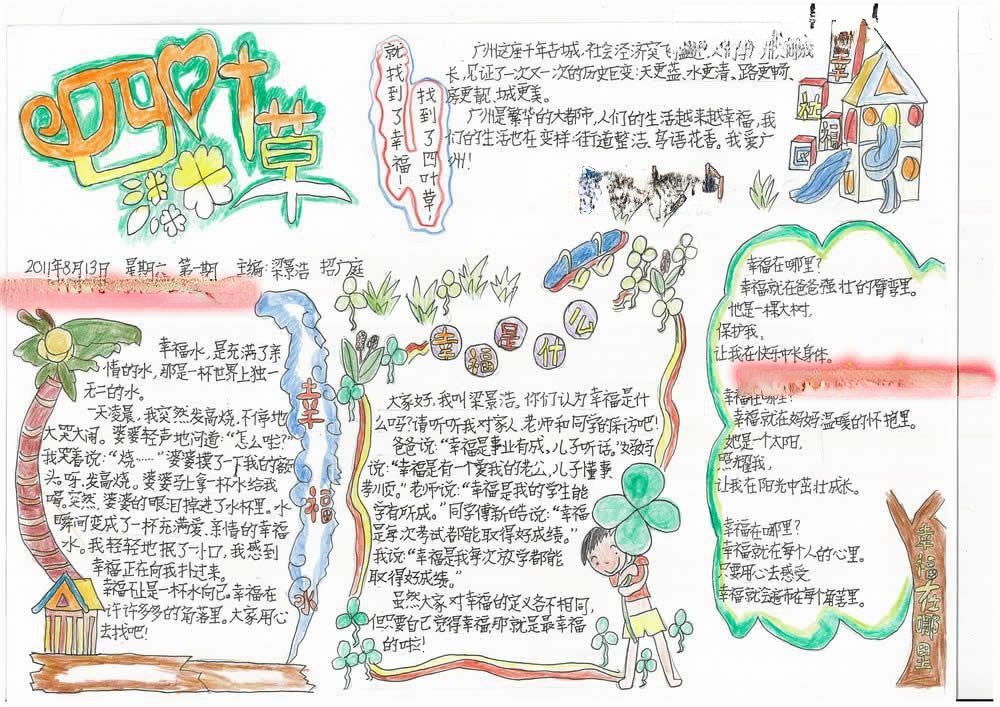 四叶草
找到了四叶草，
就找到了幸福！
广州这座千年古城，社会经济突飞
长，见证了一次又一次的历史巨变：天更蓝、水更清、路更畅、
房更靓、城更美。
广州是繁华的大都市，人们的生活越来越幸福，我
们的生活也在变样：街道整洁、鸟语花香。我爱广
州！
幸
福
社
区
2011年8月13日 星期六 第一期 主编：梁景浩 招广庭
幸福水
幸福水，是充满了亲
情的水，那是一杯世界上独一
无二的水。
一天凌晨，我突然发高烧，不停地
大哭大闹。婆婆轻声地问道：“怎么啦？”
我哭着说：“烧……”婆婆摸了一下我的额
头，呀，发高烧。婆婆马上拿一杯水给我
喝。突然，婆婆的眼泪掉进了水杯里。水
瞬间变成了一杯充满爱、亲情的幸福
水。我轻轻地抿了一小口，我感到
幸福正在向我扑过来。
幸福不止是一杯水而已。幸福在
许许多多的角落里。大家用心
去找吧！
幸福是什么
大家好，我叫梁景浩。你们认为幸福是什
么吗？请听听我对家人、老师和同学的采访吧！
爸爸说：“幸福是事业有成，儿子听话。”妈妈
说：“幸福是有一个爱我的老公，儿子懂事
孝顺。”老师说：“幸福是我的学生能
学有所成。”同学傅新皓说：“幸福
是每次考试都能取得好成绩。”
我说：“幸福是我每次放学都能
取得好成绩。”
虽然大家对幸福的定义各不相同，
但只要自己觉得幸福，那就是最幸福
的啦！
幸福在哪里
幸福在哪里？
幸福就在爸爸强壮的臂弯里。
他是一棵大树，
保护我，
让我在快乐中
幸福在哪里？
幸福就在妈妈温暖的怀抱里。
她是一个太阳，
照耀我，
让我在阳光中茁壮成长。
幸福在哪里？
幸福就在每个人的心里。
只要用心去感受，
幸福就会遍布在每个角落里。